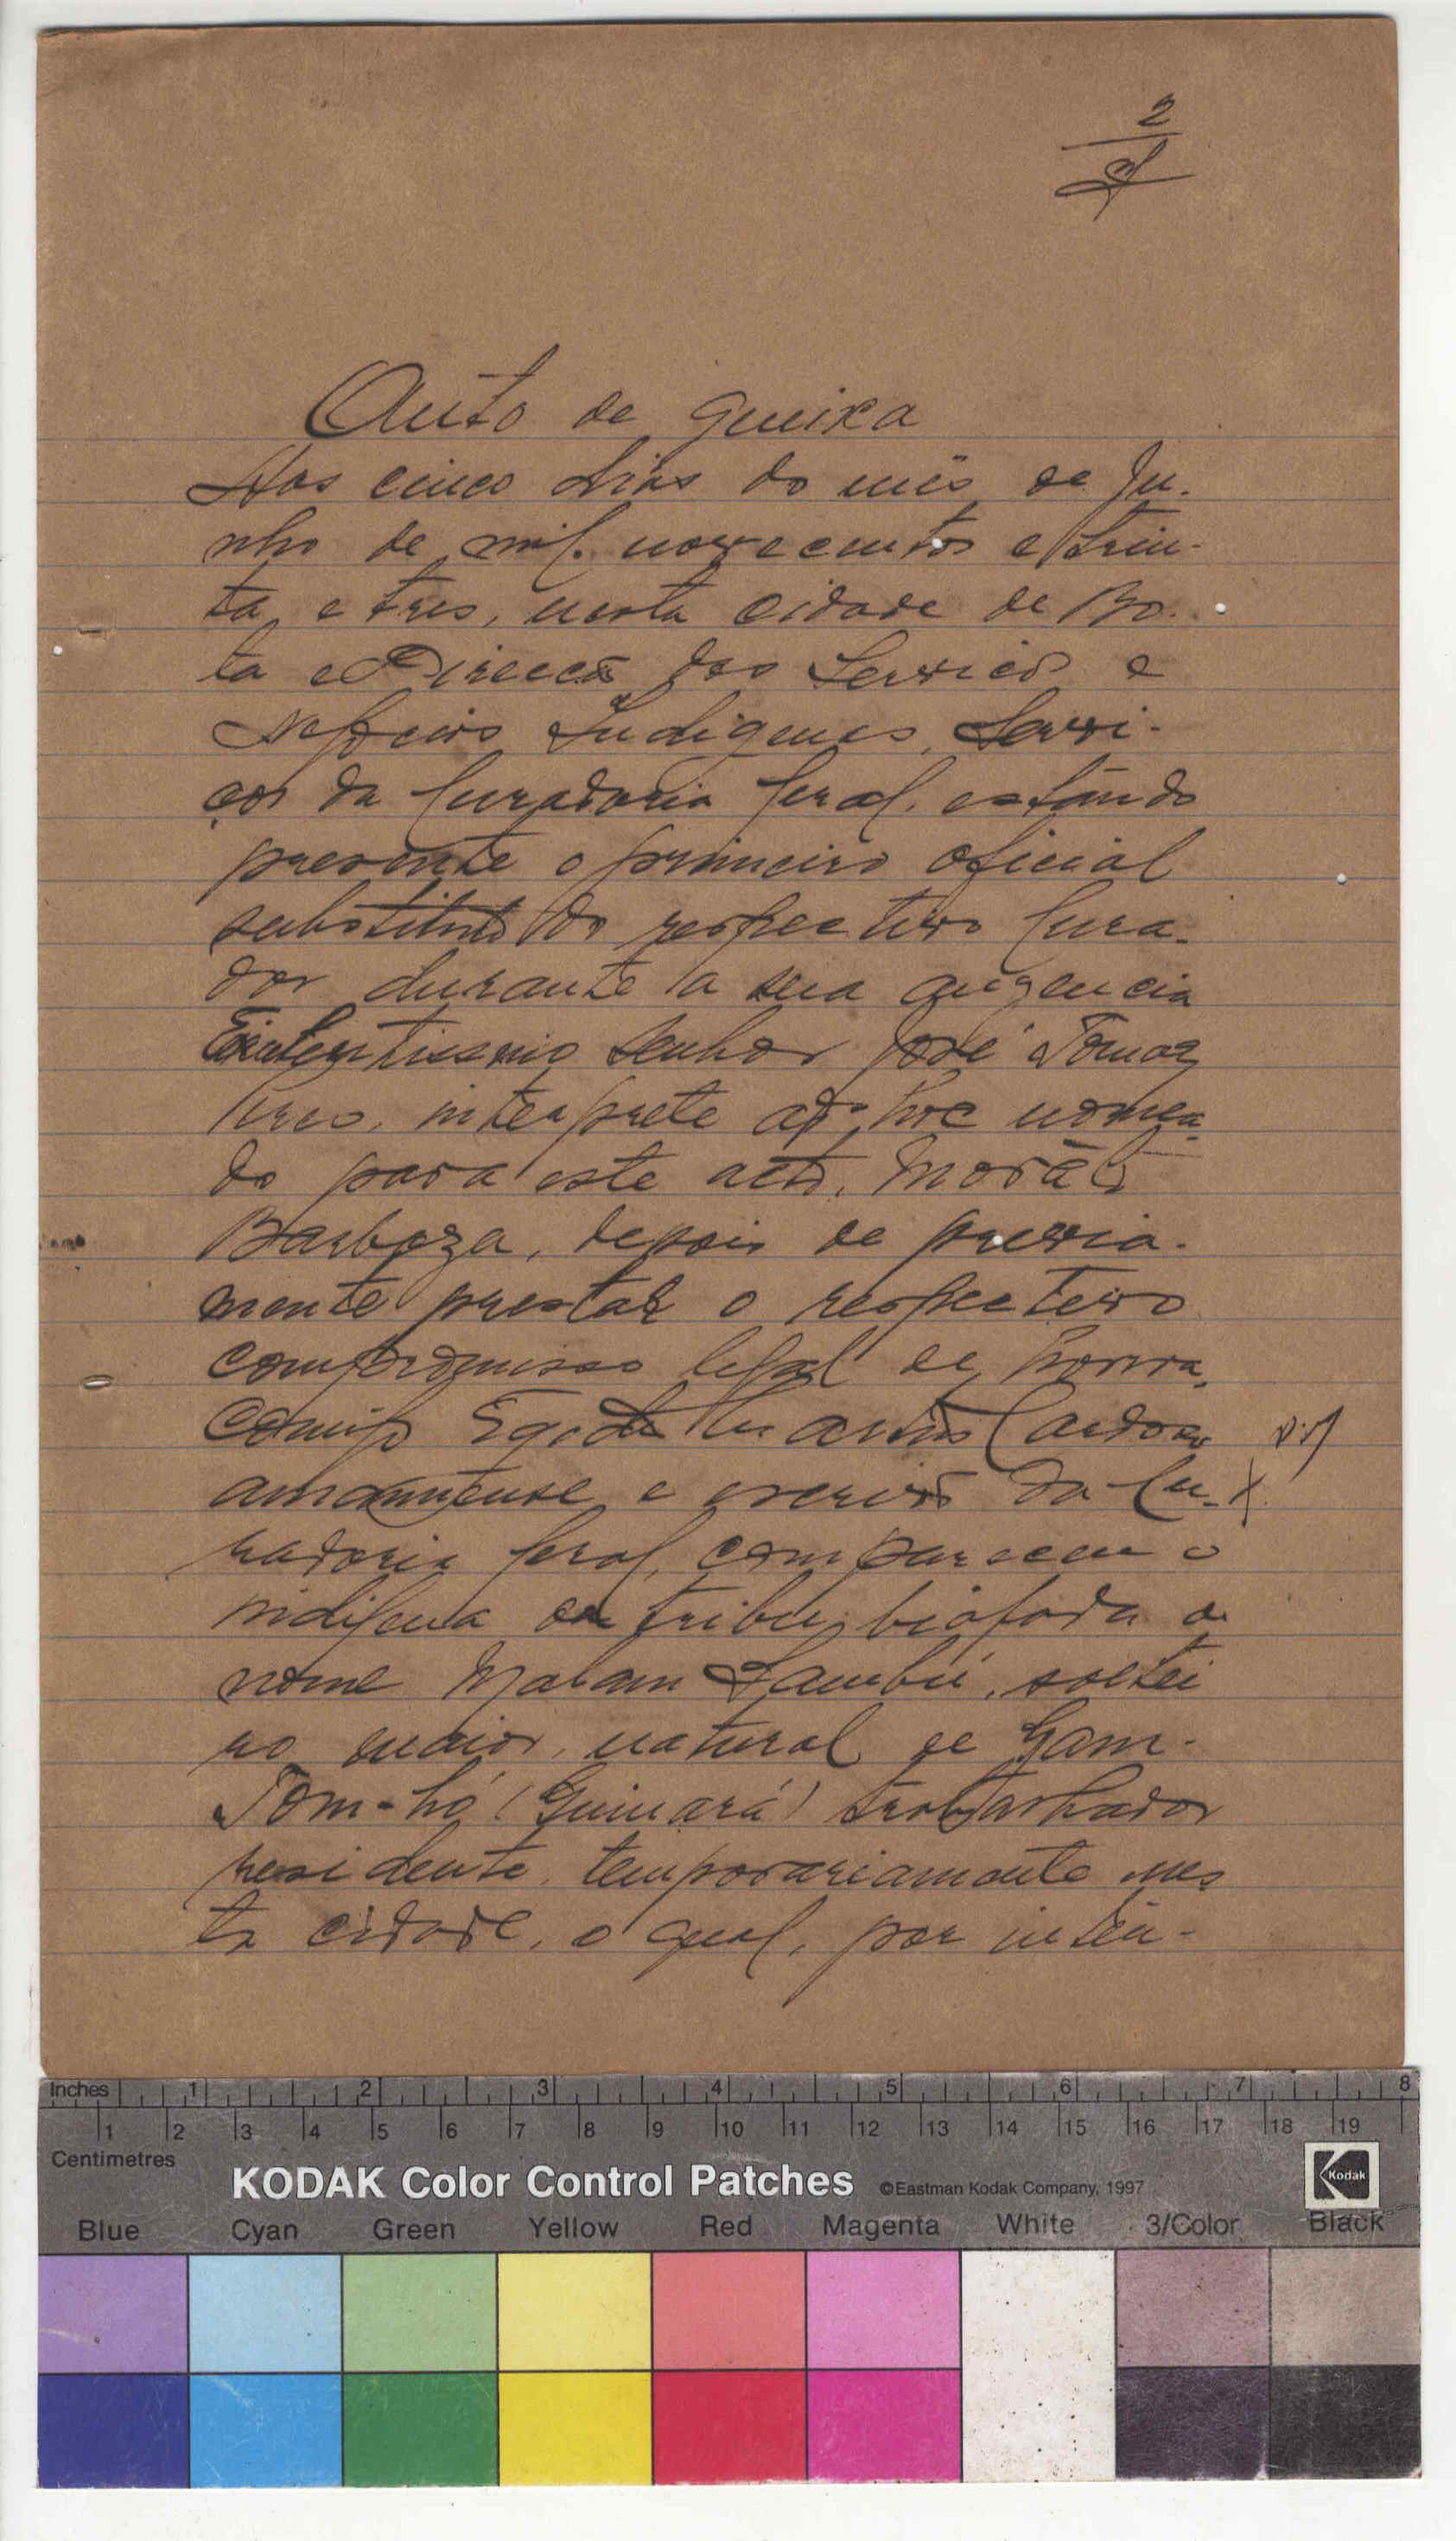 2
Auto de queixa
Aos cinco dias do mês de Ju-
nho de mil novecentos e trin-
ta e tres, nesta cidade de Bo-
la e Direcção dos Serviços e
Negocios Indigenas, Servi-
ços da Curadoria Geral, estando
presente o primeiro oficial
substituto do respectivo Cura-
dor durante a sua auzencia
Excelentissimo Senhor José Tomaz
interprete ad-hoc nomea-
do para este acto,
Barboza, depois de previa-
mente prestar o respectivo
compromisso legal de honra,
comigo Martins Cardoso
amanuense e escrivão da Cu-
radoria Geral, compareceu o
indigena da tribu biafada de
nome Malam Sambú, soltei
ro maior, natural de Gam-
Tom-hó (Guinará) trabalhador
residente temporariamente nes
ta cidade, o qual, por inter-
Inches 1 2 3 4 5 6 7 8
1 2 3 4 5 6 7 8 9 10 11 12 13 14 15 16 17 18 19
Centimetres
KODAK Color Control Patches ©Eastman Kodak Company, 1997 Kodak
Blue Cyan Green Yellow Red Magenta White 3/Color Black